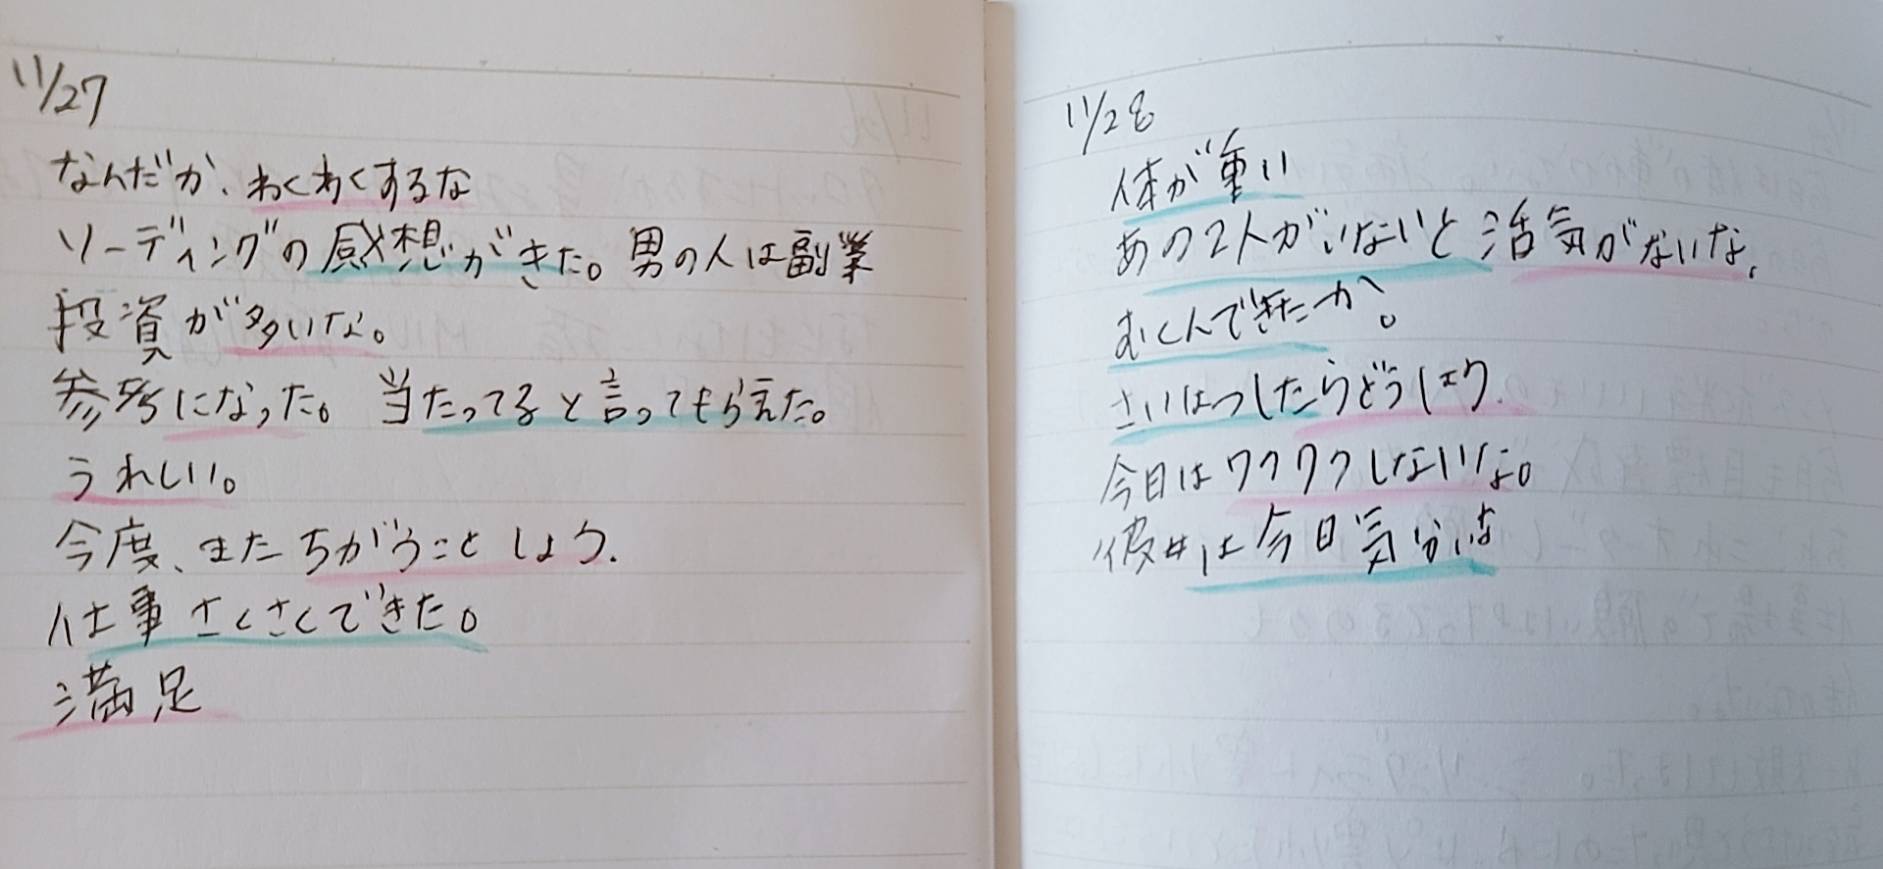 11/27
なんだか、わくわくするな
リーディングの感想がきた。男の人は副業
投資が多いな。
参考になった。当たってると言ってもらえた。
うれしい。
今度、またちがうことしよう.
仕事さくさくできた。
満足
11/28
体が重い
あの2人がいないと活気がないな、
むくんできたか。
さいはつしたらどうしよう.
今日はワクワクしないな。
彼女は今日気分は